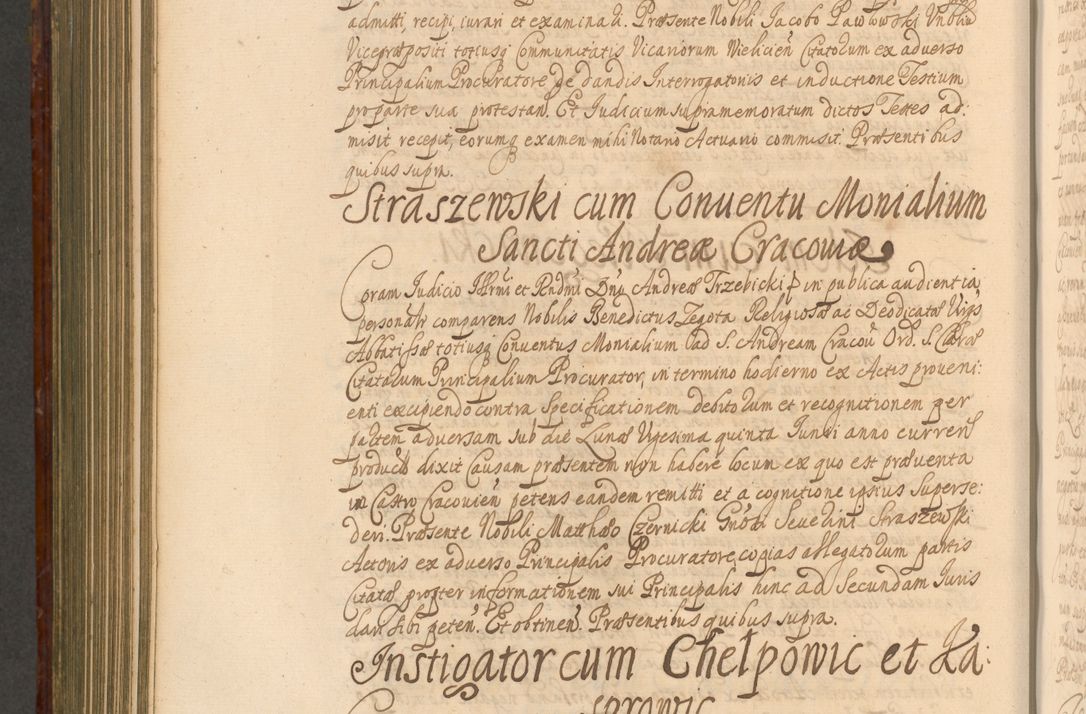 admitti, recipi, iurari et examinari. Præsente Nobili Jacobo Pawlowski
Vicepræpositi totiusq Communitatis Vicariorum Vielicien Citatorum ex adverso
Principalium Procuratore de dandis Interrogatoriis et inductione Testium
pro parte sua protestan. Et Iudicium supramemoratum dictos Testes ad:
misit recepit, eorumq examen mihi Notario Actuario commisit. Præsentibus
quibus supra.
Straszewski cum Conuentu Monialium
Sancti Andreæ Cracouiæ
Coram Iudicio Illrmi et Rndmi Dni Andreæ Trzebicki in publica audientia
personalr comparens Nobilis Benedictus Zegota Religiosæ ac Deodicatæ Virgs
Abbatissæ totiusq Conventus Monialium ad S. Andream Cracou Ord. S. Claræ
Citatarum Principalium Procurator, in termino hodierno ex Actis proveni:
enti excipiendo contra specificationem debitorum et recognitionem per
partem adversam sub die Lunæ Vigesima quinta Iunii anno curren
product dixit Causam præsentem non habere locum ex quo est præventa
in Castro Cracovien petens eandem remitti et a cognitione ipsius superse:
deri. Præsente Nobili Matthæo Czernicki Gnosi Severini Straszewski
Actoris ex adverso Principalis Procuratore, copias allegatorum partis
Citatæ propter informationem sui Principalis hinc ad secundam Iuris
dari sibi peten. Et obtinen. Præsentibus quibus supra.
Instigator cum Chelpowic et Ka:
sprowic